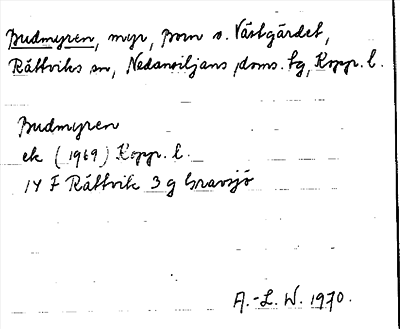 Budmyren, myr, som s. Västgärdet,
Rättviks sn, Nedansiljans doms. tg, Kopp. l.
Budmyren
ek (1969) Kopp. l.
14 F Rättvik 3 g Gravsjö
A.-L. W. 1970.